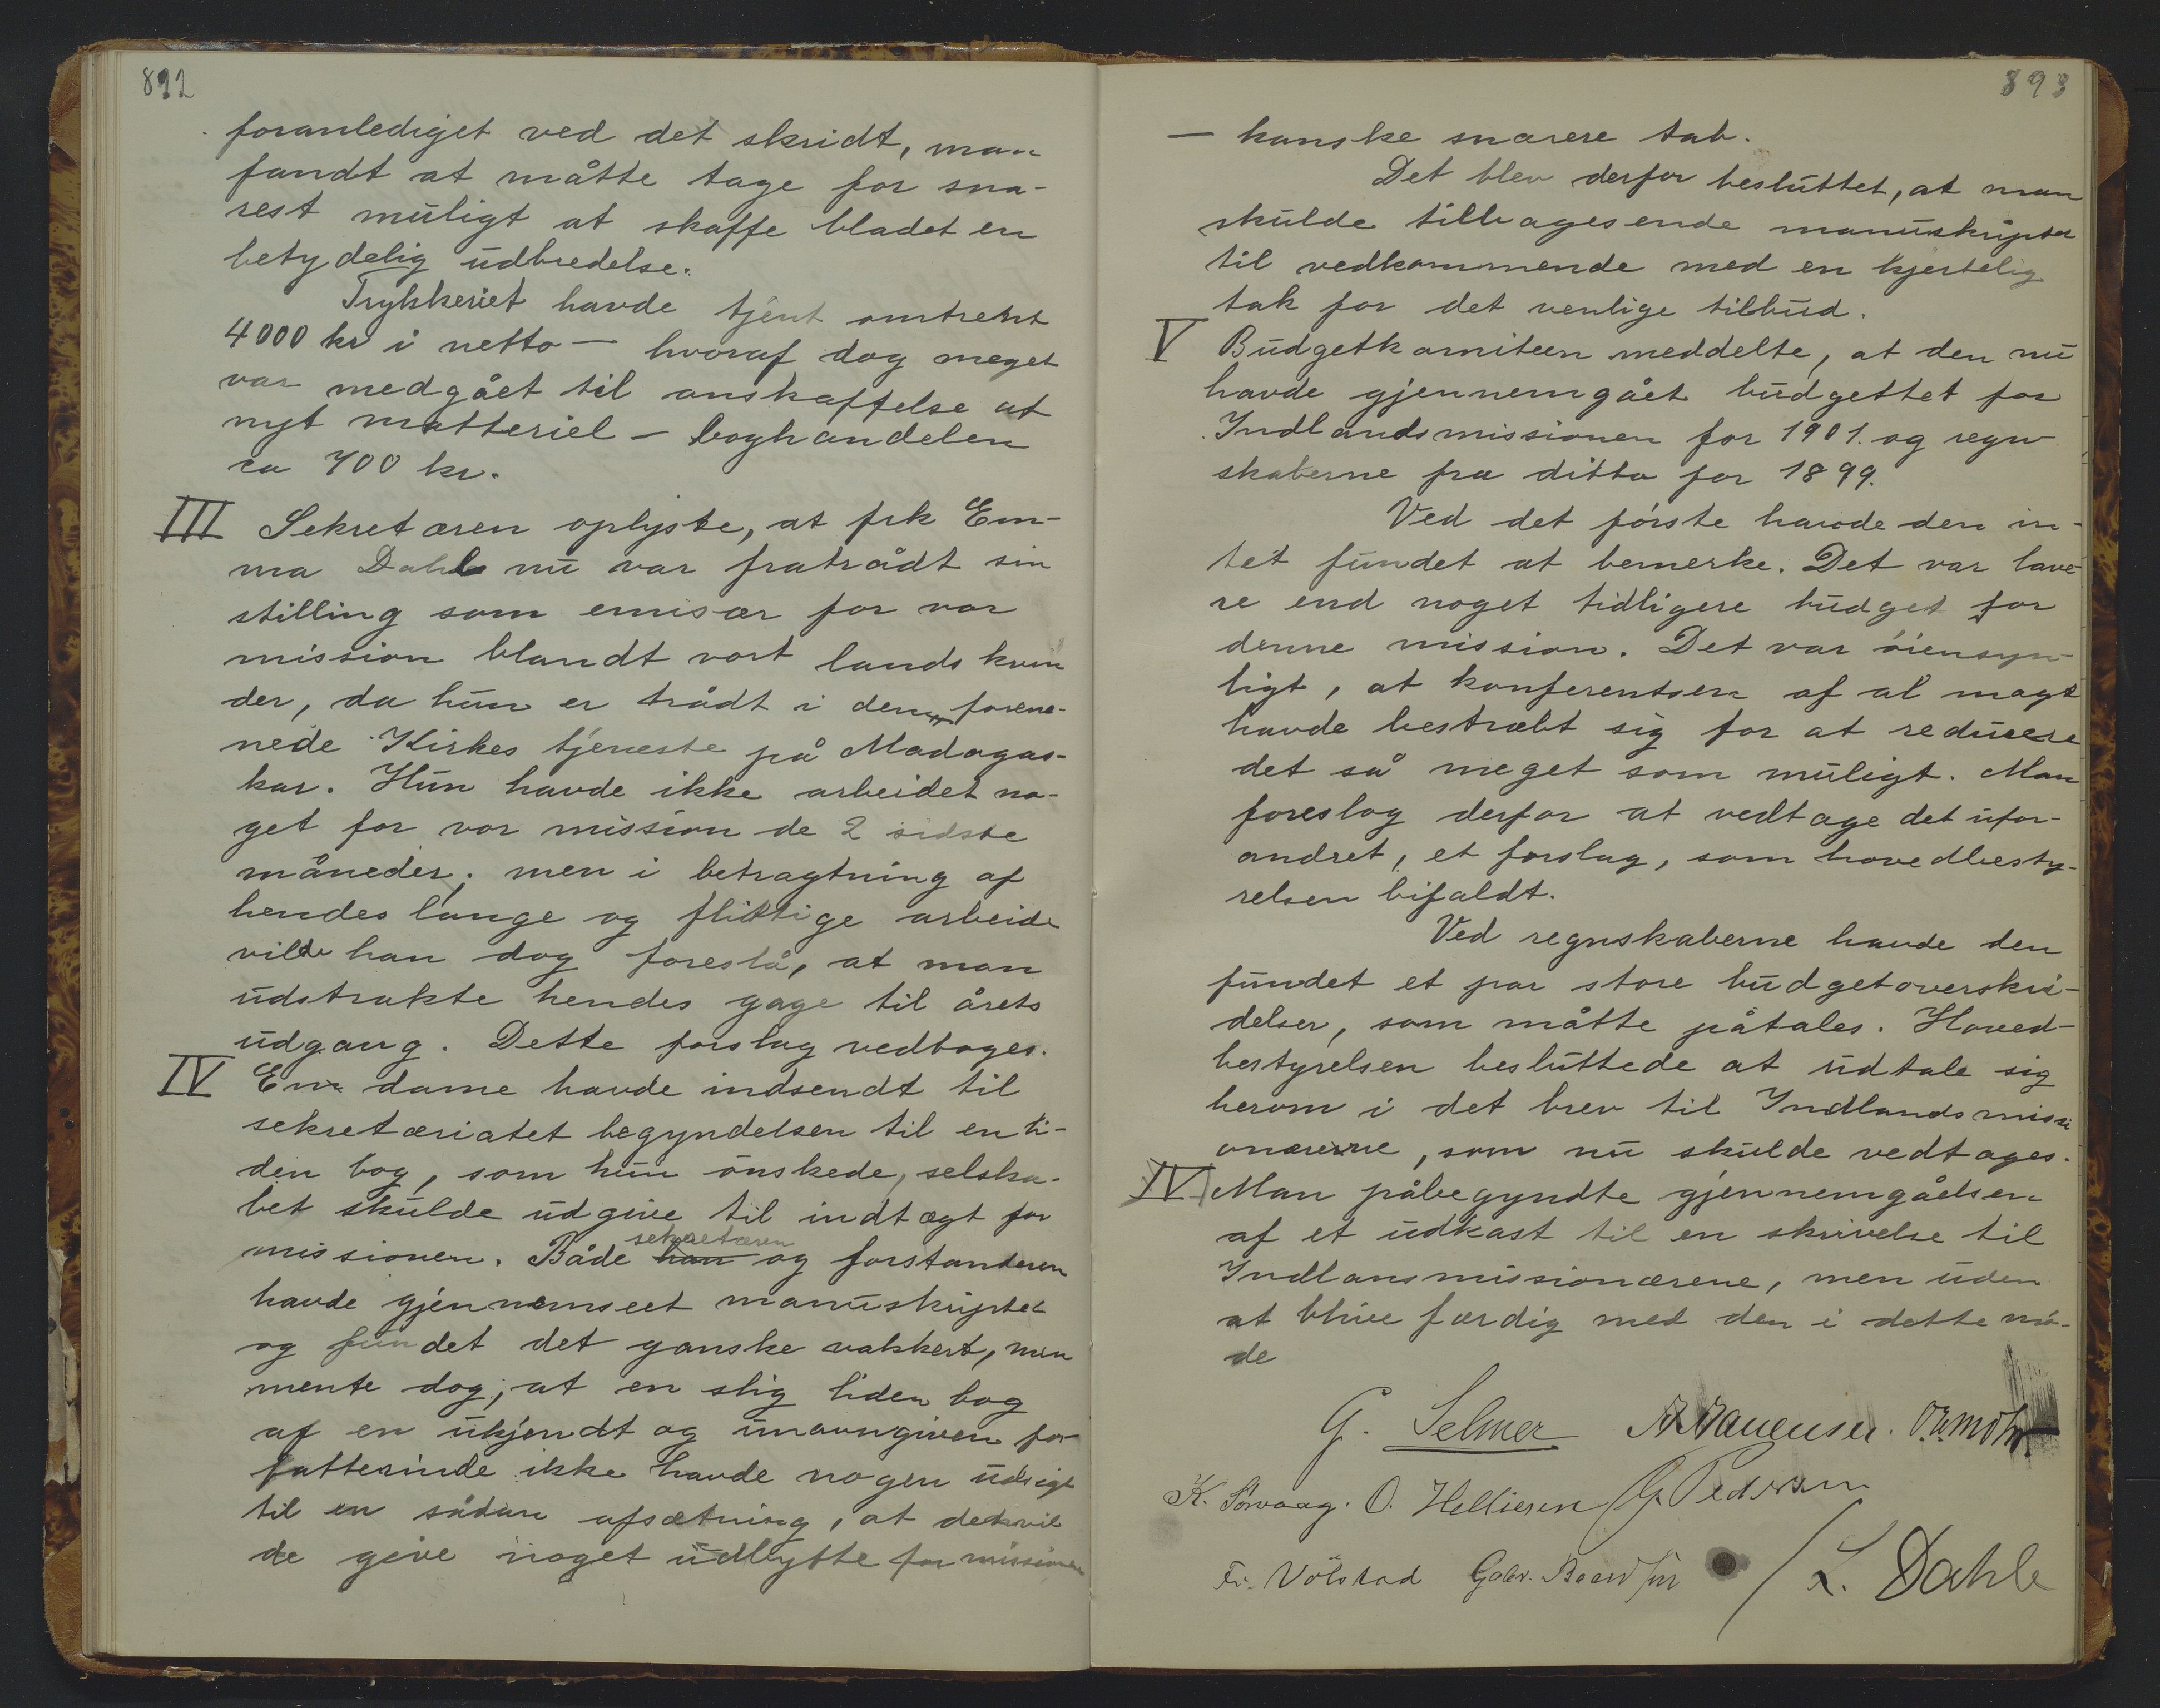 892
foranlediget ved det skridt, man
fandt at måtte tage for sna-
rest muligt at skaffe bladet en
betydelig udbredelse.
Trykkeriet havde tjent omtrent
4000 kr i netto — hvoraf dog meget
var medgået til anskaffelse af
nyt matteriel — boghandelen
ca 700 kr.
III Sekretæren oplyste, at frk Em-
ma Dahl nu var fratrådt sin
stilling som emisær for vor
mission blandt vort lands kvin
der, da hun er trådt i den forene-
nede Kirkes tjeneste på Madagas-
kar. Hun havde ikke arbeidet no-
get for vor mission de 2 sidste
måneder; men i betragtning af
hendes lange og flittige arbeide
vilde han dog foreslå, at man
udstrakte hendes gage til årets
udgang. Dette forslag vedtoges.
IV En dame havde indsendt til
sekretæriatet begyndelsen til en li-
den bog, som hun ønskede, selska-
bet skulde udgive til indtægt for
missionen. Både han sekretæren og forstanderen
havde gjennemseet manuskriptet
og fundet det ganske vakkert, men
mente dog, at en slig liden bog
af en ukjendt og unavngiven for-
fatterinde ikke havde nogen udsigt
til en sådan afsætning, at det vil
de give noget udbytte for missionen
893
— kanske snarere tab.
Det blev derfor besluttet, at man
skulde tilbagesende manuskriptet
til vedkommende med en hjertelig
tak for det venlige tilbud.
V Budgetkomiteen meddelte, at den nu
havde gjennemgået budgettet for
Indlandsmissionen for 1901. og regn-
skaberne fra ditto for 1899.
Ved det første havde den in-
tet fundet at bemerke. Det var lave-
re end noget tidligere budget for
denne mission. Det var øiensyn-
ligt, at konferentsen af al magt
havde bestræbt sig for at reducere
det så meget som muligt. Man
foreslog derfor at vedtage det ufor-
andret, et forslag, som hovedbesty-
relsen bifaldt.
Ved regnskaberne havde den
fundet et par store budgetoverskri-
delser, som måtte påtales. Hoved-
bestyrelsen besluttede at udtale sig
herom i det brev til Indlandsmissi
onærerne, som nu skulde vedtages.
IV Man påbegyndte gjennemgåelsen
af et udkast til en skrivelse til
Indlansmissionærene, men uden
at blive færdig med den i dette mø-
de
G. Selmer
K. Sørvaag. O. Helliesen G. Pedersen
Fr. Völstad L. Dahle